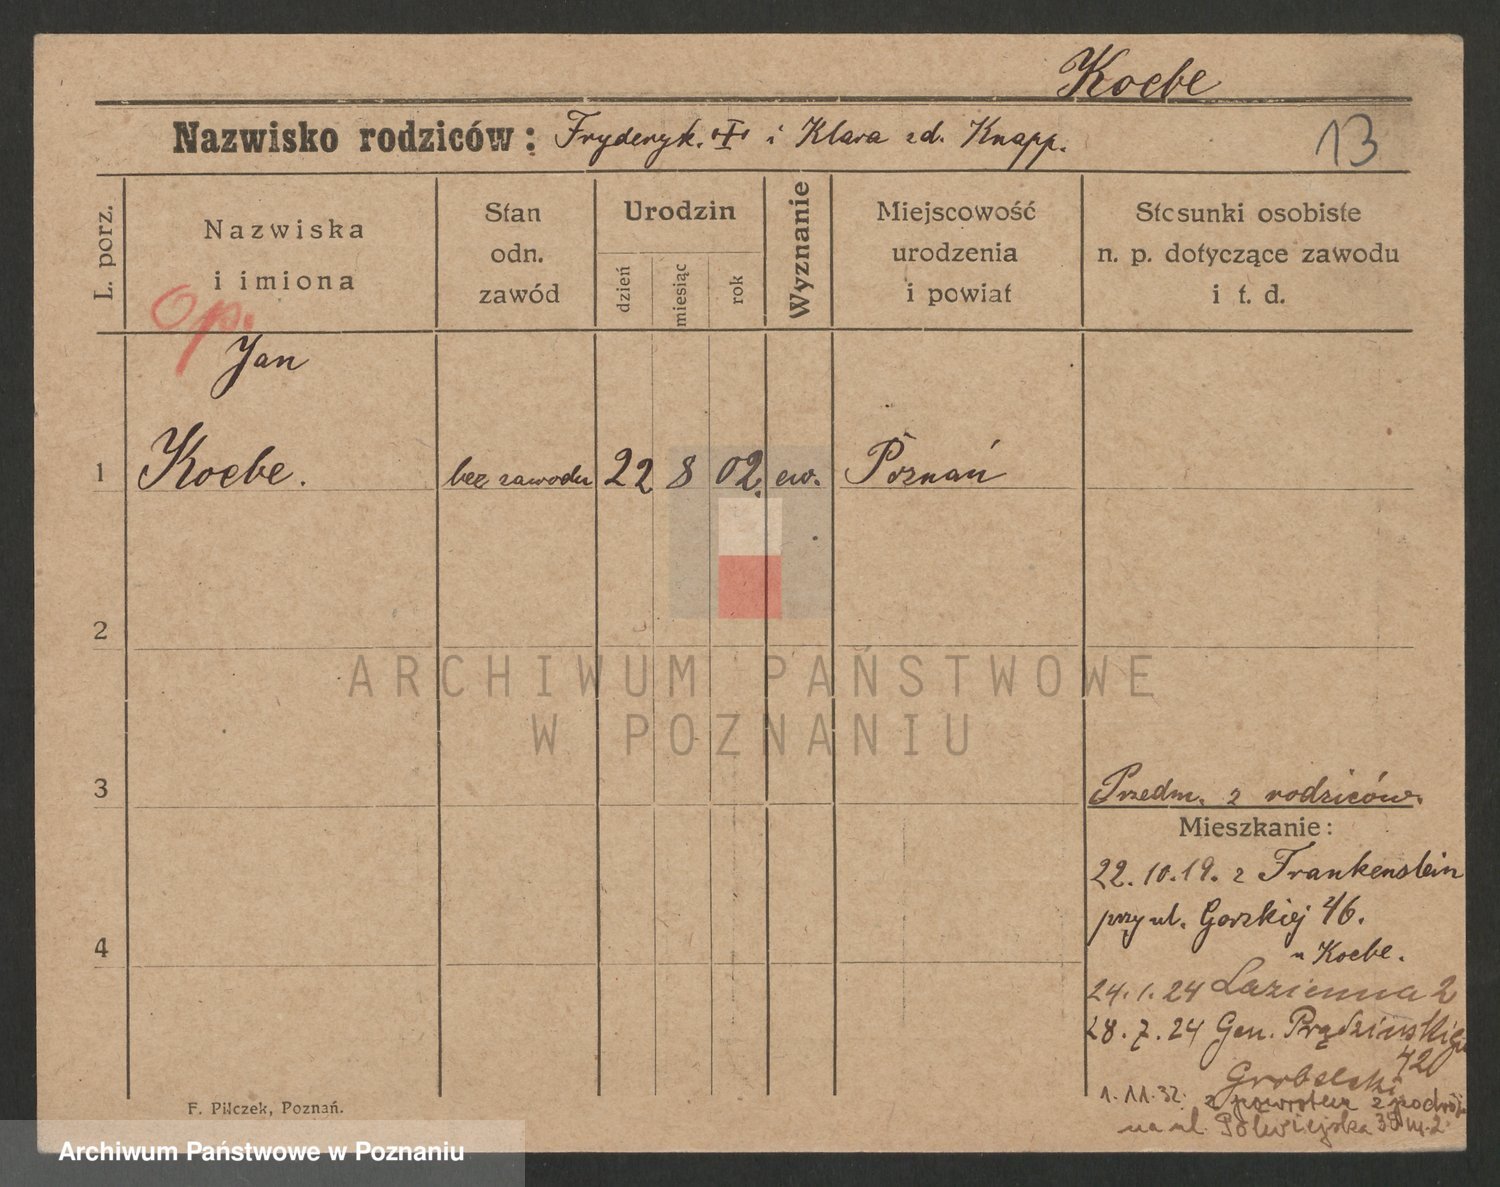 Koebe
Nazwisko rodziców: Fryderyk. i Klara zd. Knapp.
13
L. porz.
Nazwiska
i imiona
Stan
odn.
zawód
Urodzin
dzień
miesiąc
rok
Wyznanie
Miejscowość
urodzenia
i powiat
Stosunki osobiste
n. p. dotyczące zawodu
i t. d.
op.
Jan
1 Koebe. bez zawodu 22 8 02. ew. Poznań
2
ARCHIWUM PAŃSTWOWE
W POZNANIU
3
Przedm. z rodziców.
Mieszkanie:
22.10.19. z Frankenstein
przy ul. Gorzkiej 46.
4
u Koebe.
24.1.24 Łazienna 2
28.7.24 Gen. Prądzińskiego
42
Grobelski
1.11.32. z powrotem z podróży
na ul. Półwiejska 35 m. 2.
F. Pilczek, Poznań.
Archiwum Państwowe w Poznaniu